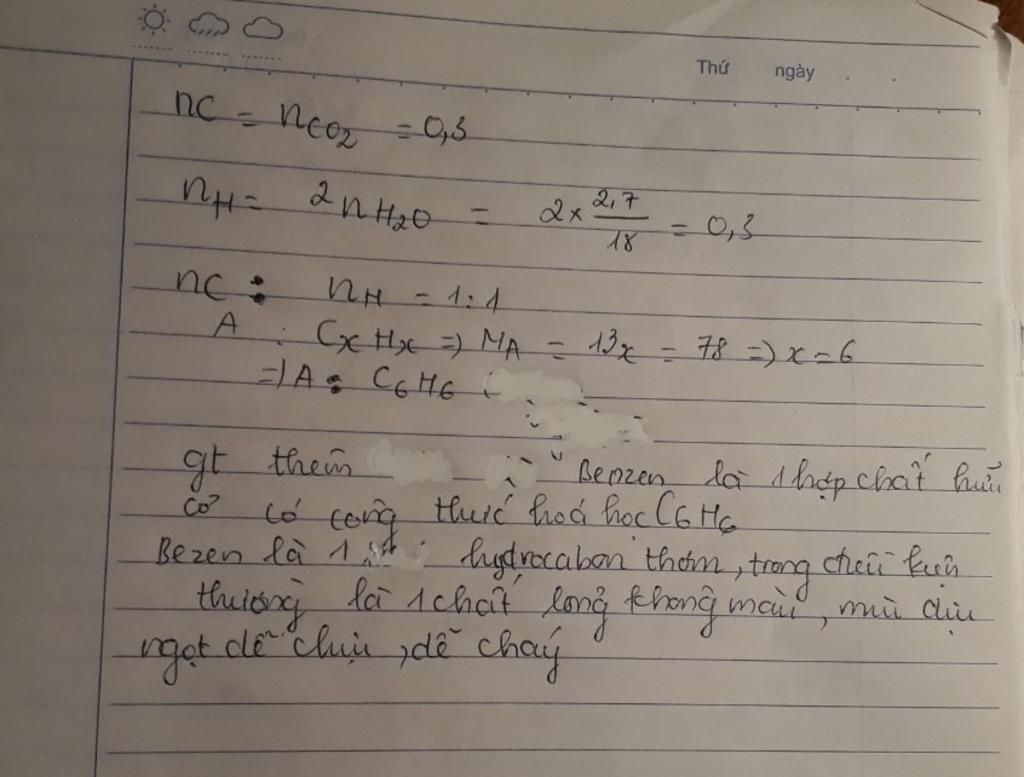 Thứ ngày
nC = nCO2 = 0,3
nH = 2nH2O = 2 × 2,7/18 = 0,3
nC : nH = 1:1
A : CxHx => MA = 13x = 78 => x = 6
=> A : C6H6 (
gt thêm Benzen là 1 hợp chất hữu
cơ có công thức hoá học C6H6
Bezen là 1 hydrocabon thơm, trong điều kiện
thường là 1 chất lỏng không màu, mùi dịu
ngọt dễ chịu, dễ cháy